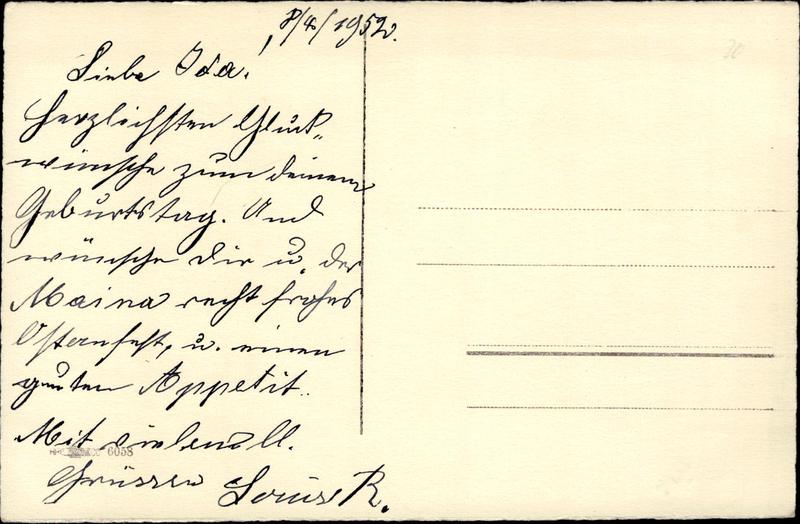 8/4/1952.
Liebe Ida.
Herzlichsten Glück-
wünsche zum deinem
Geburtstag. Und
wünsche dir u. der
Maina recht frohes
Osternfest, u. einen
guten Appetit..
Mit vielen
6058
Grüssen Louise R.
20